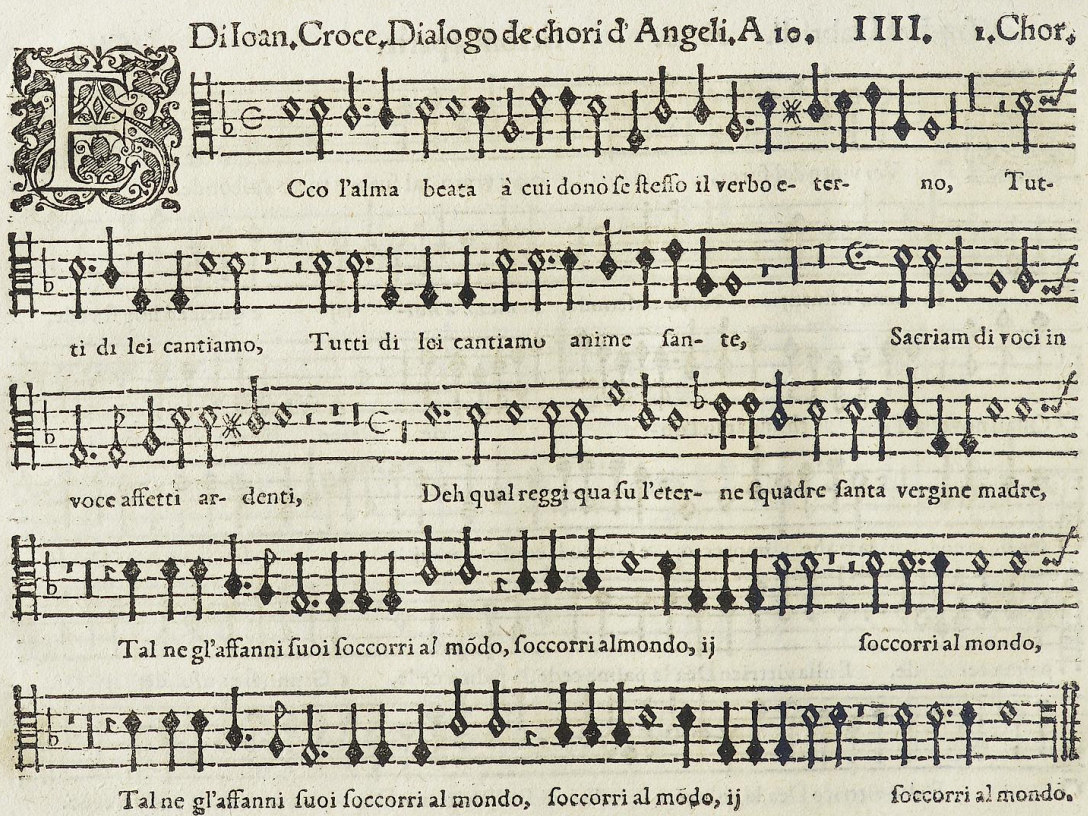 Di Ioan. Croce. Dialogo de chori d' Angeli. A 10. IIII. 1. Chor.
ECco l'alma beata à cui donò se stesso il verbo e- ter- no, Tut-
ti di lei cantiamo, Tutti di lei cantiamo anime san- te, Sacriam di voci in
voce affetti ar- denti, Deh qual reggi qua su l'eter- ne squadre santa vergine madre,
Tal ne gl'affanni suoi soccorri al mõdo, soccorri almondo, ij soccorri al mondo,
Tal ne gl'affanni suoi soccorri al mondo, soccorri al mõdo, ij soccorri al mondo.